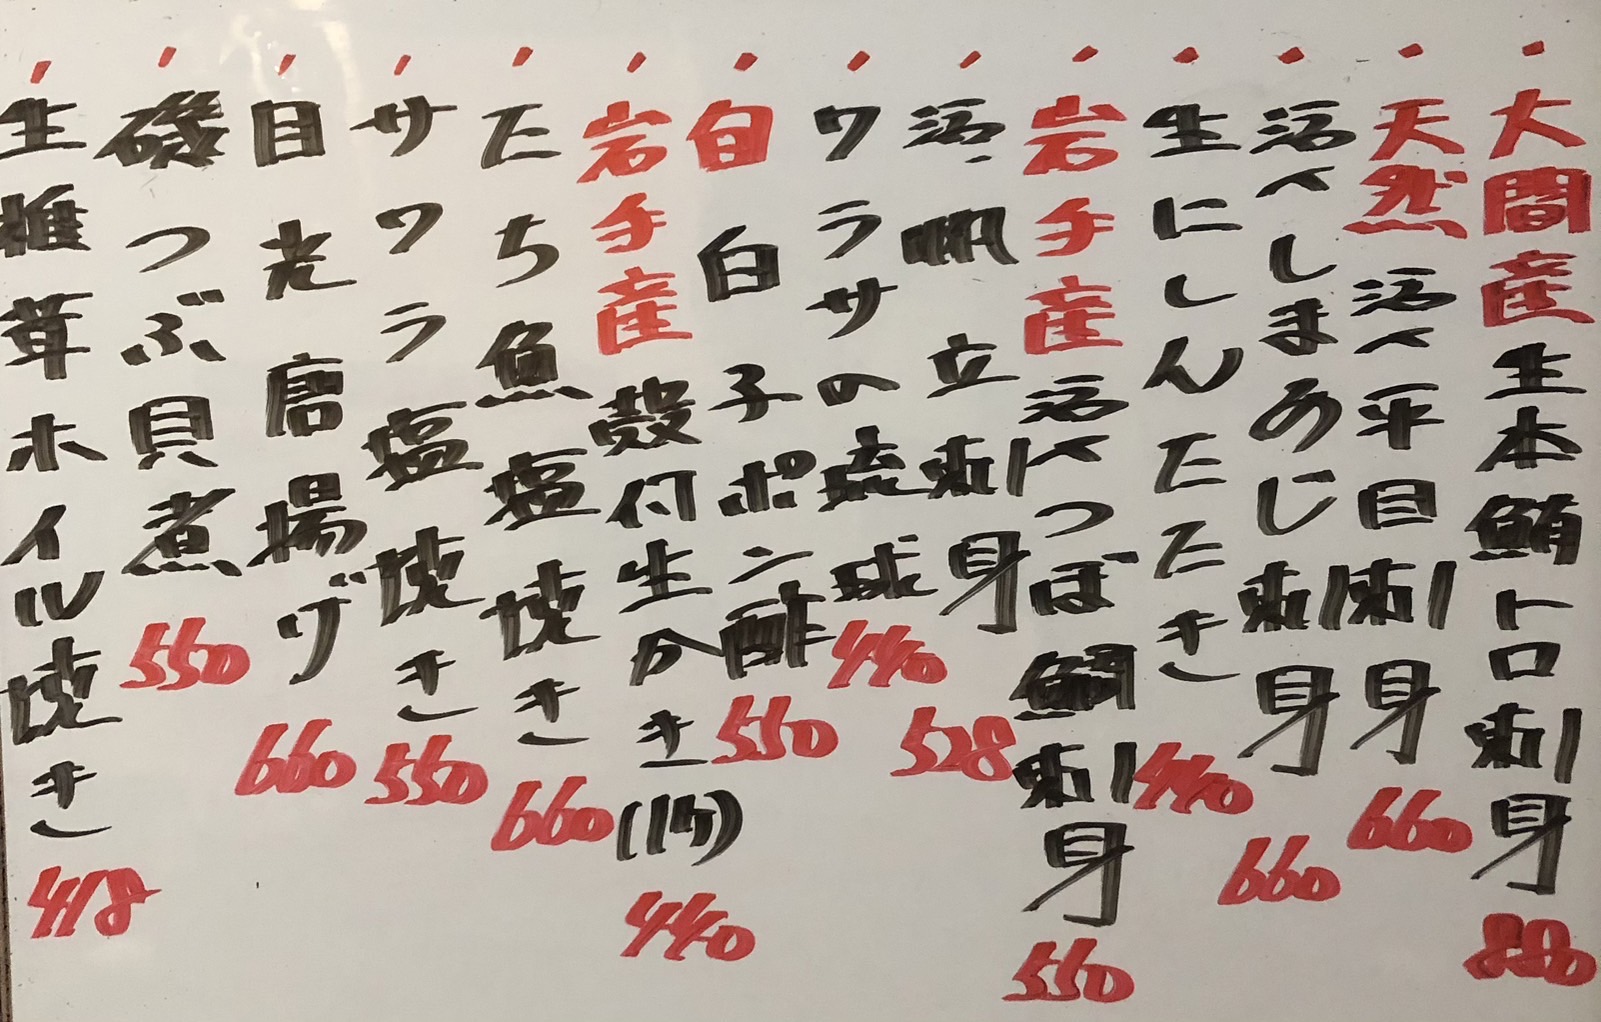 ・大間産生本鮪トロ刺身 880
・天然活〆平目刺身 660
・活〆しまあじ刺身 660
・生にしんたたき 440
・岩手産活〆つぼ鯛刺身 550
・活帆立刺身 528
・ワラサの琉球 440
・白子ポン酢 550
・岩手産殻付生かき(1ケ) 440
・たち魚塩焼き 660
・サワラ塩焼き 550
・目光唐揚げ 660
・磯つぶ貝煮 550
・生椎茸ホイル焼き 418